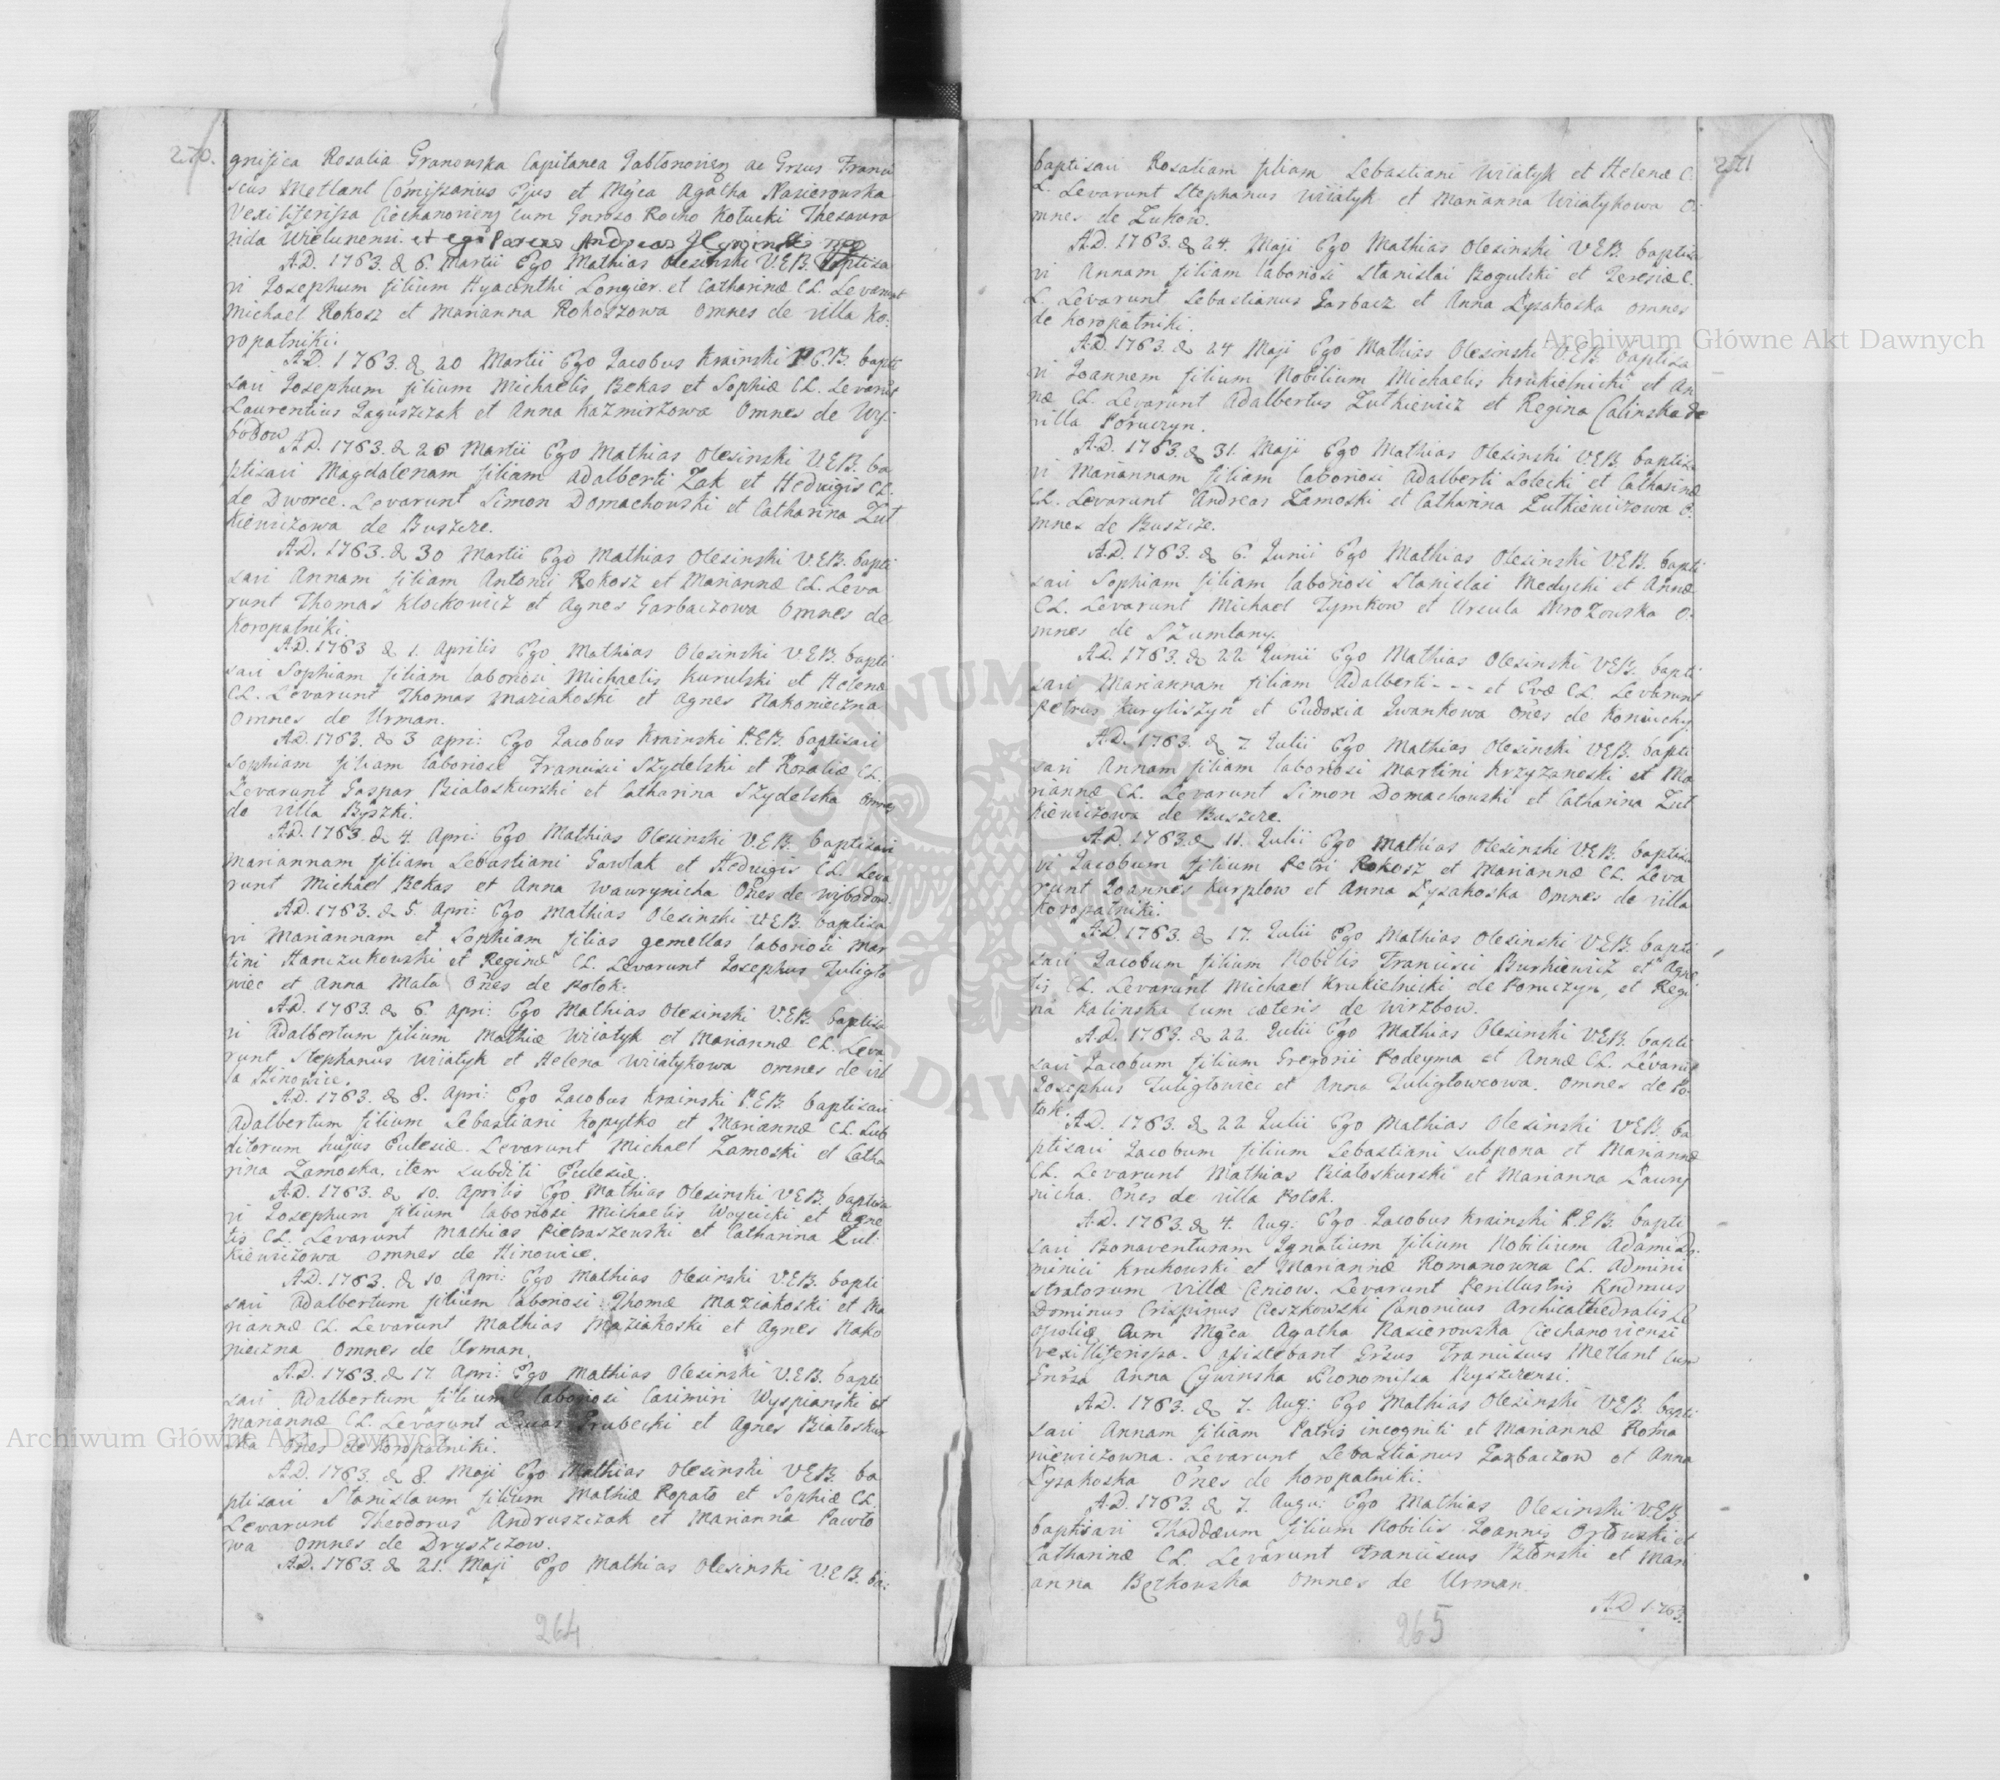 270.
gnifica Rosalia Granowska Capitanea Jabłonovien ac Grsus Franci
scus Metlant Comissarius Ejus et Mgca Agatha Nasierowska
Vexilliferissa Ciechanoviens cum Gnroso Rocho Kołucki Thesaura
rida Wielunensi. et ego Andreas
A.D. 1763. d. 6. Martii Ego Mathias Olesinski V.E.B. baptisa
vi Josephum filium Hyacinthi Longier et Catharinæ CL. Levarunt
Michael Rokosz et Marianna Rokoszowa omnes de villa Ko:
ropatniki.
A.D. 1763. d 20 Martii Ego Jacobus Krainski P.E.B. bapti
savi Josephum filium Michaelis Bekas et Sophiæ CL. Levarut
Laurentius Jaguszczak et Anna Kazmirzowa Omnes de Wy:
bodow
A.D. 1763. d 26 Martii Ego Mathias Olesinski V.E.B. ba
ptisavi Magdalenam filiam Adalberti Zak et Hedvigis CL.
de Dworce. Levarunt Simon Domachowski et Catharina Zut
kiewiczowa de Buszcze.
A.D. 1763. d 30 Martii Ego Mathias Olesinski V.E.B. bapti
savi Annam filiam Antonii Rokosz et Mariannæ CL. Leva
runt Thomas Klockowicz et Agnes Garbaczowa Omnes de
Koropatniki.
A.D. 1763 d 1. Aprilis Ego Mathias Olesinski V.E.B. bapti
savi Sophiam filiam laboriosi Michaelis Kurulski et Helenæ
CL. Levarunt Thomas Maziakoski et Agnes Nakonieczna
Omnes de Urman.
A.D. 1763. d 3 Apri: Ego Jacobus Krainski P.E.B. baptisavi
Sophiam filiam laboriose Francisci Szydelski et Rozaliæ CL.
Levarunt Gaspar Białoskurski et Catharina Szydelska omnes
de villa Byszki.
A.D. 1763. d 4. Apri: Ego Mathias Olesinski V.E.B. baptisavi
Mariannam filiam Sebastiani Gawlak et Hedvigis CL. Leva
runt Michael Bekas et Anna Wawrynicha Ones de Wybodow.
A.D. 1763. d 5. Apri: Ego Mathias Olesinski V.E.B. baptisa
vi Mariannam et Sophiam filias gemellas laboriosi Mar
tini Hanczukowski et Reginæ CL. Levarunt Josephus Zuligło
wiec et Anna Mała Ones de Potok.
A.D. 1763. d 6. Apri: Ego Mathias Olesinski V.E.B. baptisa
vi Adalbertum filium Mathiæ Wiiatyk et Mariannæ CL. Leva
runt Stephanus Wiiatyk et Helena Wiiatykowa omnes de vil
la Hinowice.
A.D. 1763. d 8. Apri: Ego Jacobus Krainski P.E.B. baptisavi
Adalbertum filium Sebastiani Kopytko et Mariannæ CL. Sub
ditorum hujus Eclesiæ. Levarunt Michael Zamoski et Catha
rina Zamoska, item subditi Eclesiæ.
A.D. 1763. d 10. Aprilis Ego Mathias Olesinski V.E.B. baptisa
vi Josephum filium laboriosi Michaelis Woycicki et Agne
tis CL. Levarunt Mathias Pietraszewski et Catharina Zut
kiewiczowa omnes de Hinowice.
A.D. 1763. d 10. Apri: Ego Mathias Olesinski V.E.B. bapti
savi Adalbertum filium laboriosi Thomæ Maziakoski et Ma
riannæ CL. Levarunt Mathias Maziakoski et Agnes Nako
nieczna omnes de Urman.
A.D. 1763. d 17. Apri: Ego Mathias Olesinski V.E.B. bapti
savi Adalbertum filium laboriosi Casimiri Wyspianski et
Mariannæ CL. Levarunt Lucas Grubecki et Agnes Białoskur
ska Ones de Koropatniki.
A.D. 1763. d 8. Maji Ego Mathias Olesinski V.E.B. ba
ptisavi Stanislaum filium Mathiæ Kopato et Sophiæ CL.
Levarunt Theodorus Andruszczak et Marianna Pawło
wa omnes de Dryszczow.
A.D. 1763. d 21. Maji Ego Mathias Olesinski V.E.B. ba:
264
271
baptisavi Rosaliam filiam Sebastiani Wiiatyk et Helenæ C.
L. Levarunt Stephanus Wiiatyk et Marianna Wiiatykowa O
mnes de Zukow.
A.D. 1763. d 24. Maji Ego Mathias Olesinski V.E.B. baptisa
vi Annam filiam laboriosi Stanislai Bogulski et Teresiæ C.
L. Levarunt Sebastianus Garbacz et Anna Łysakoska omnes
de Koropatniki.
A.D. 1763. d 24 Maji Ego Mathias Olesinski V.E.B. baptisa
vi Joannem filium Nobilium Michaelis Krukielnicki et An
næ CL. Levarunt Adalbertus Zutkiewicz et Regina Calinska de
villa Poruczyn.
A.D. 1763. d 31. Maji Ego Mathias Olesinski V.E.B. baptisa
vi Mariannam filiam laboriosi Adalberti Solecki et Catharinæ
CL. Levarunt Andreas Zamoski et Catharina Zutkiewiczowa O:
mnes de Buszcze.
A.D. 1763. d 6. Junii Ego Mathias Olesinski V.E.B. bapti
savi Sophiam filiam laboriosi Stanislai Medycki et Annæ
CL. Levarunt Michael Tymkow et Ursula Mrozowska O.
mnes de Szumlany.
A.D. 1763. d 22 Junii Ego Mathias Olesinski V.E.B. bapti
savi Mariannam filiam Adalberti - - - et Evæ CL. Levarunt
Petrus Kuryliszyn et Eudoxia Jwankowa Ones de Koniuchy.
A.D. 1763. d 7 Julii Ego Mathias Olesinski V.E.B. bapti
savi Annam filiam laboriosi Martini Krzyzaneski et Ma
riannæ CL. Levarunt Simon Domachowski et Catharina Zut
kiewiczowa de Buszcze.
A.D. 1763. d 11. Julii Ego Mathias Olesinski V.E.B. baptisa
vi Jacobum filium Petri Rokosz et Mariannæ CL. Leva
runt Joannes Kurplow et Anna Łysakoska omnes de villa
Koropatniki.
A.D. 1763. d 17. Julii Ego Mathias Olesinski V.E.B. bapti
savi Jacobum filium Nobilis Francisci Burkiewicz et Agne
tis CL. Levarunt Michael Krukielnicki de Poruczyn, et Regi
na Kalinska cum cæteris de Wirzbow.
A.D. 1763. d 22. Julii Ego Mathias Olesinski V.E.B. bapti
savi Jacobum filium Gregorii Podeyma et Annæ CL. Levarut
Josephus Zuligłowiec et Anna Zuligłowcowa. omnes de Po:
tok.
A.D. 1763. d 22 Julii Ego Mathias Olesinski V.E.B. ba
ptisavi Jacobum filium Sebastiani Subpona et Mariannæ
CL. Levarunt Mathias Białoskurski et Marianna Ławry
nicha. Ones de villa Potok.
A.D. 1763. d 4. Aug: Ego Jacobus Krainski P.E.B. bapti
savi Bonaventuram Ignatium filium Nobilium Adami Do:
minici Krukowski et Mariannæ Romanowna CL. Admini
stratorum Villæ Ceniow. Levarunt Perillustris Rndmus
Dominus Crispinus Cieszkowski Canonicus Archicathedralis Le
opoliæ, cum Mgca Agatha Nasierowska Ciechanoviensi
vexilliferissa. Assistebant Grsus Franciscus Metlant cum
Gnrsa Anna Cywinska Œconomissa Byszczensi.
A.D. 1763. d 7. Aug: Ego Mathias Olesinski V.E.B. bapti
savi Annam filiam Patris incogniti et Mariannæ Roma
niewiczowna. Levarunt Sebastianus Garbaczow et Anna
Łysakoska Ones de Koropatniki.
A.D. 1763. d 7. Augu: Ego Mathias Olesinski V.E.B.
baptisavi Thaddæum filium Nobilis Joannis Orłowski et
Catharinæ CL. Levarunt Franciscus Błonski et Mari
anna Bęzkowska omnes de Urman.
A.D 1763.
265
Archiwum Główne Akt Dawnych
Archiwum Główne Akt Dawnych
ARCHIWUM GŁÓWNE AKT DAWNYCH